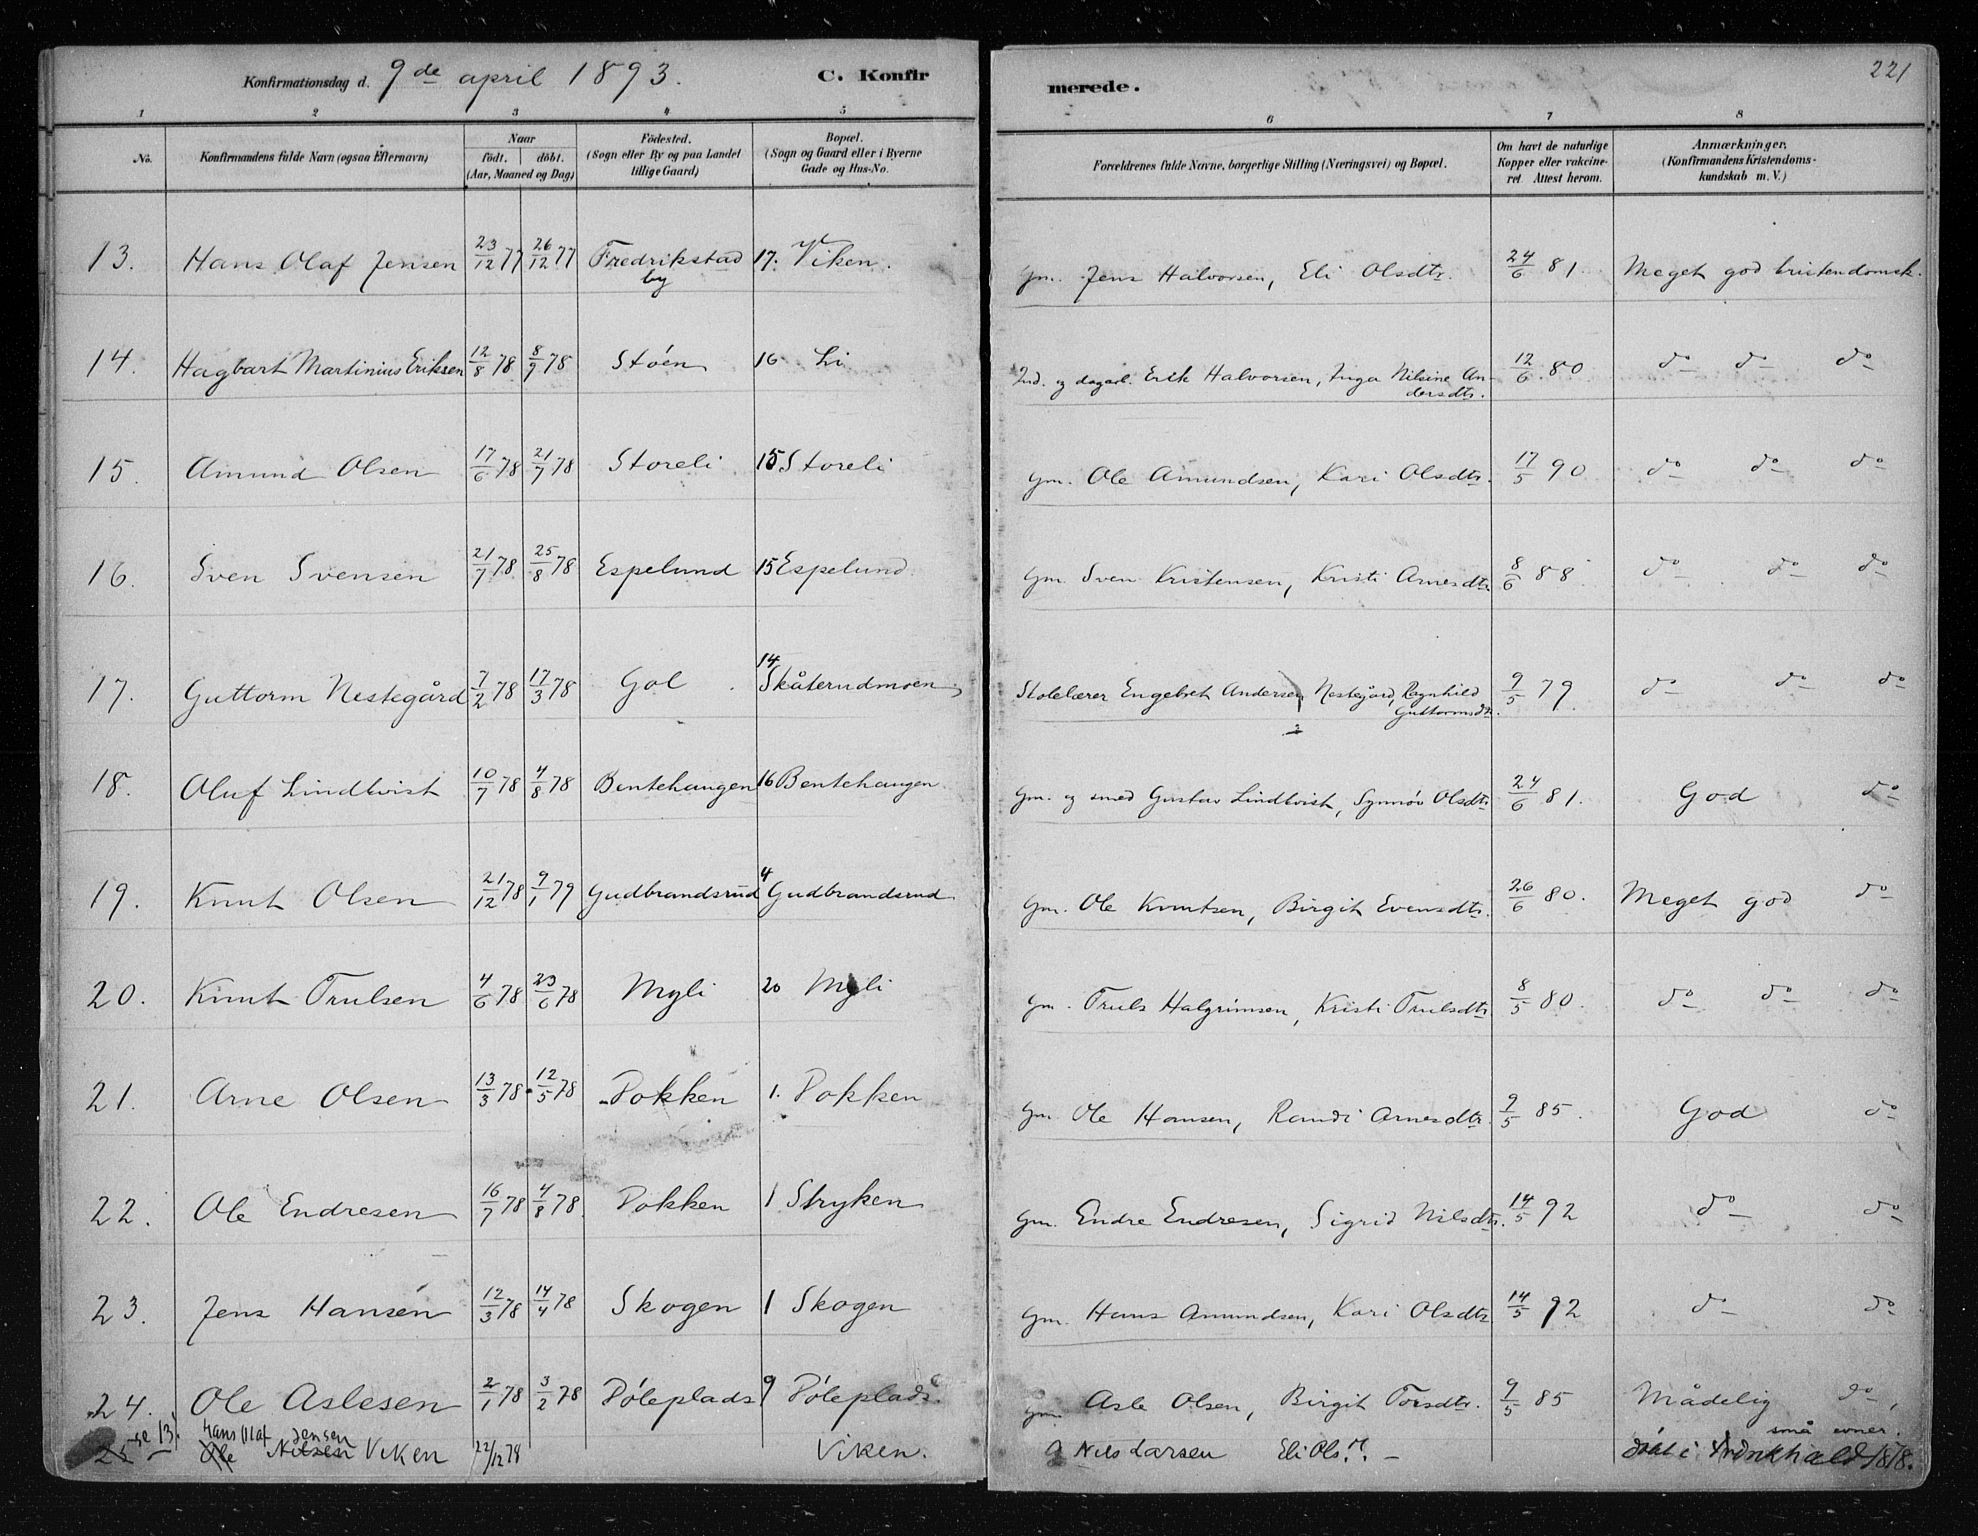 Konfirmationsdag d. 9de april 1893. C. Konfir merede. 221
1 2 3 4 5 6 7 8
No. Konfirmandens fulde Navn (ogsaa Efternavn) Naar födt. döbt. (Aar, Maaned og Dag) Födested. (Sogn eller By og paa Landet tillige Gaard) Bopæl. (Sogn og Gaard eller i Byerne Gade og Hus-No. Forældrenes fulde Navne, borgerlige Stilling (Næringsvei) og Bopæl. Om havt de naturlige Kopper eller vakcineret. Attest herom. Anmærkninger. (Konfirmandens Kristendomskundskab m. V.)
13. Hans Olaf Jensen 23/12 77 26/12 77 Fredrikstad by 17. Viken. Gm. Jens Halvorsen, Eli Olsdtr. 24/6 81. Meget god kristendomsk.
14. Hagbart Martinius Eriksen 12/8 78 8/9 78 Stóen 16 Li Ind. og dagarb. Erik Halvorsen, Inga Nilsine Andersdtr. 12/6 80 do do do
15. Amund Olsen 17/6 78 21/7 78 Storeli 15 Storeli Gm. Ole Amundsen, Kari Olsdtr. 17/5 90 do do do
16. Sven Svensen 21/7 78 25/8 78 Espelund 15 Espelund Gm. Sven Kristensen, Kristi Arnesdtr. 8/6 88 do do do
17. Guttorm Nestegård 7/2 78 17/3 78 Gol. 14 Skåterudmoen, Skolelærer Engebret Andersen Nestegård, Ragnhild Guttormsdtr. 9/5 79. do do do
18. Oluf Lindkvist 10/7 78 4/8 78 Bentehaugen 16 Bentehaugen Gm. og smed Gustav Lindkvist, Synnøv Olsdtr 24/6 81. God do
19. Knut Olsen 21/12 78 9/1 79 Gudbrandsrud 4 Gudbrandsrud Gm. Ole Knutsen, Birgit Evensdtr. 26/6 80. Meget god do
20. Knut Trulsen 4/6 78 23/6 78 Myli 20 Myli Gm. Truls Halgrimsen, Kristi Trulsdtr 8/5 80. do do do
21. Arne Olsen 13/3 78 12/5 78 Dokken 1. Dokken Gm. Ole Hansen, Randi Arnesdtr. 9/5 85. God do
22. Ole Endresen 16/7 78 4/8 78. Dokken 1 Stryken Gm. Endre Endresen, Sigrid Nilsdtr. 14/5 92 do do
23. Jens Hansen 12/3 78 14/4 78 Skogen 1 Skogen Gm. Hans Amundsen, Kari Olsdtr. 14/5 92 do do
24. Ole Aslesen 2/1 78 3/2 78 Döleplads 9 Döleplads. Gm. Asle Olsen, Birgit Torsdtr. 9/5 85 Mådelig do, små evner.
25 se 13! Hans Olaf Jensen
Ole Nilsen Viken 22/12 78 Viken. Nils Larsen Eli Ols. døbt i 1878.